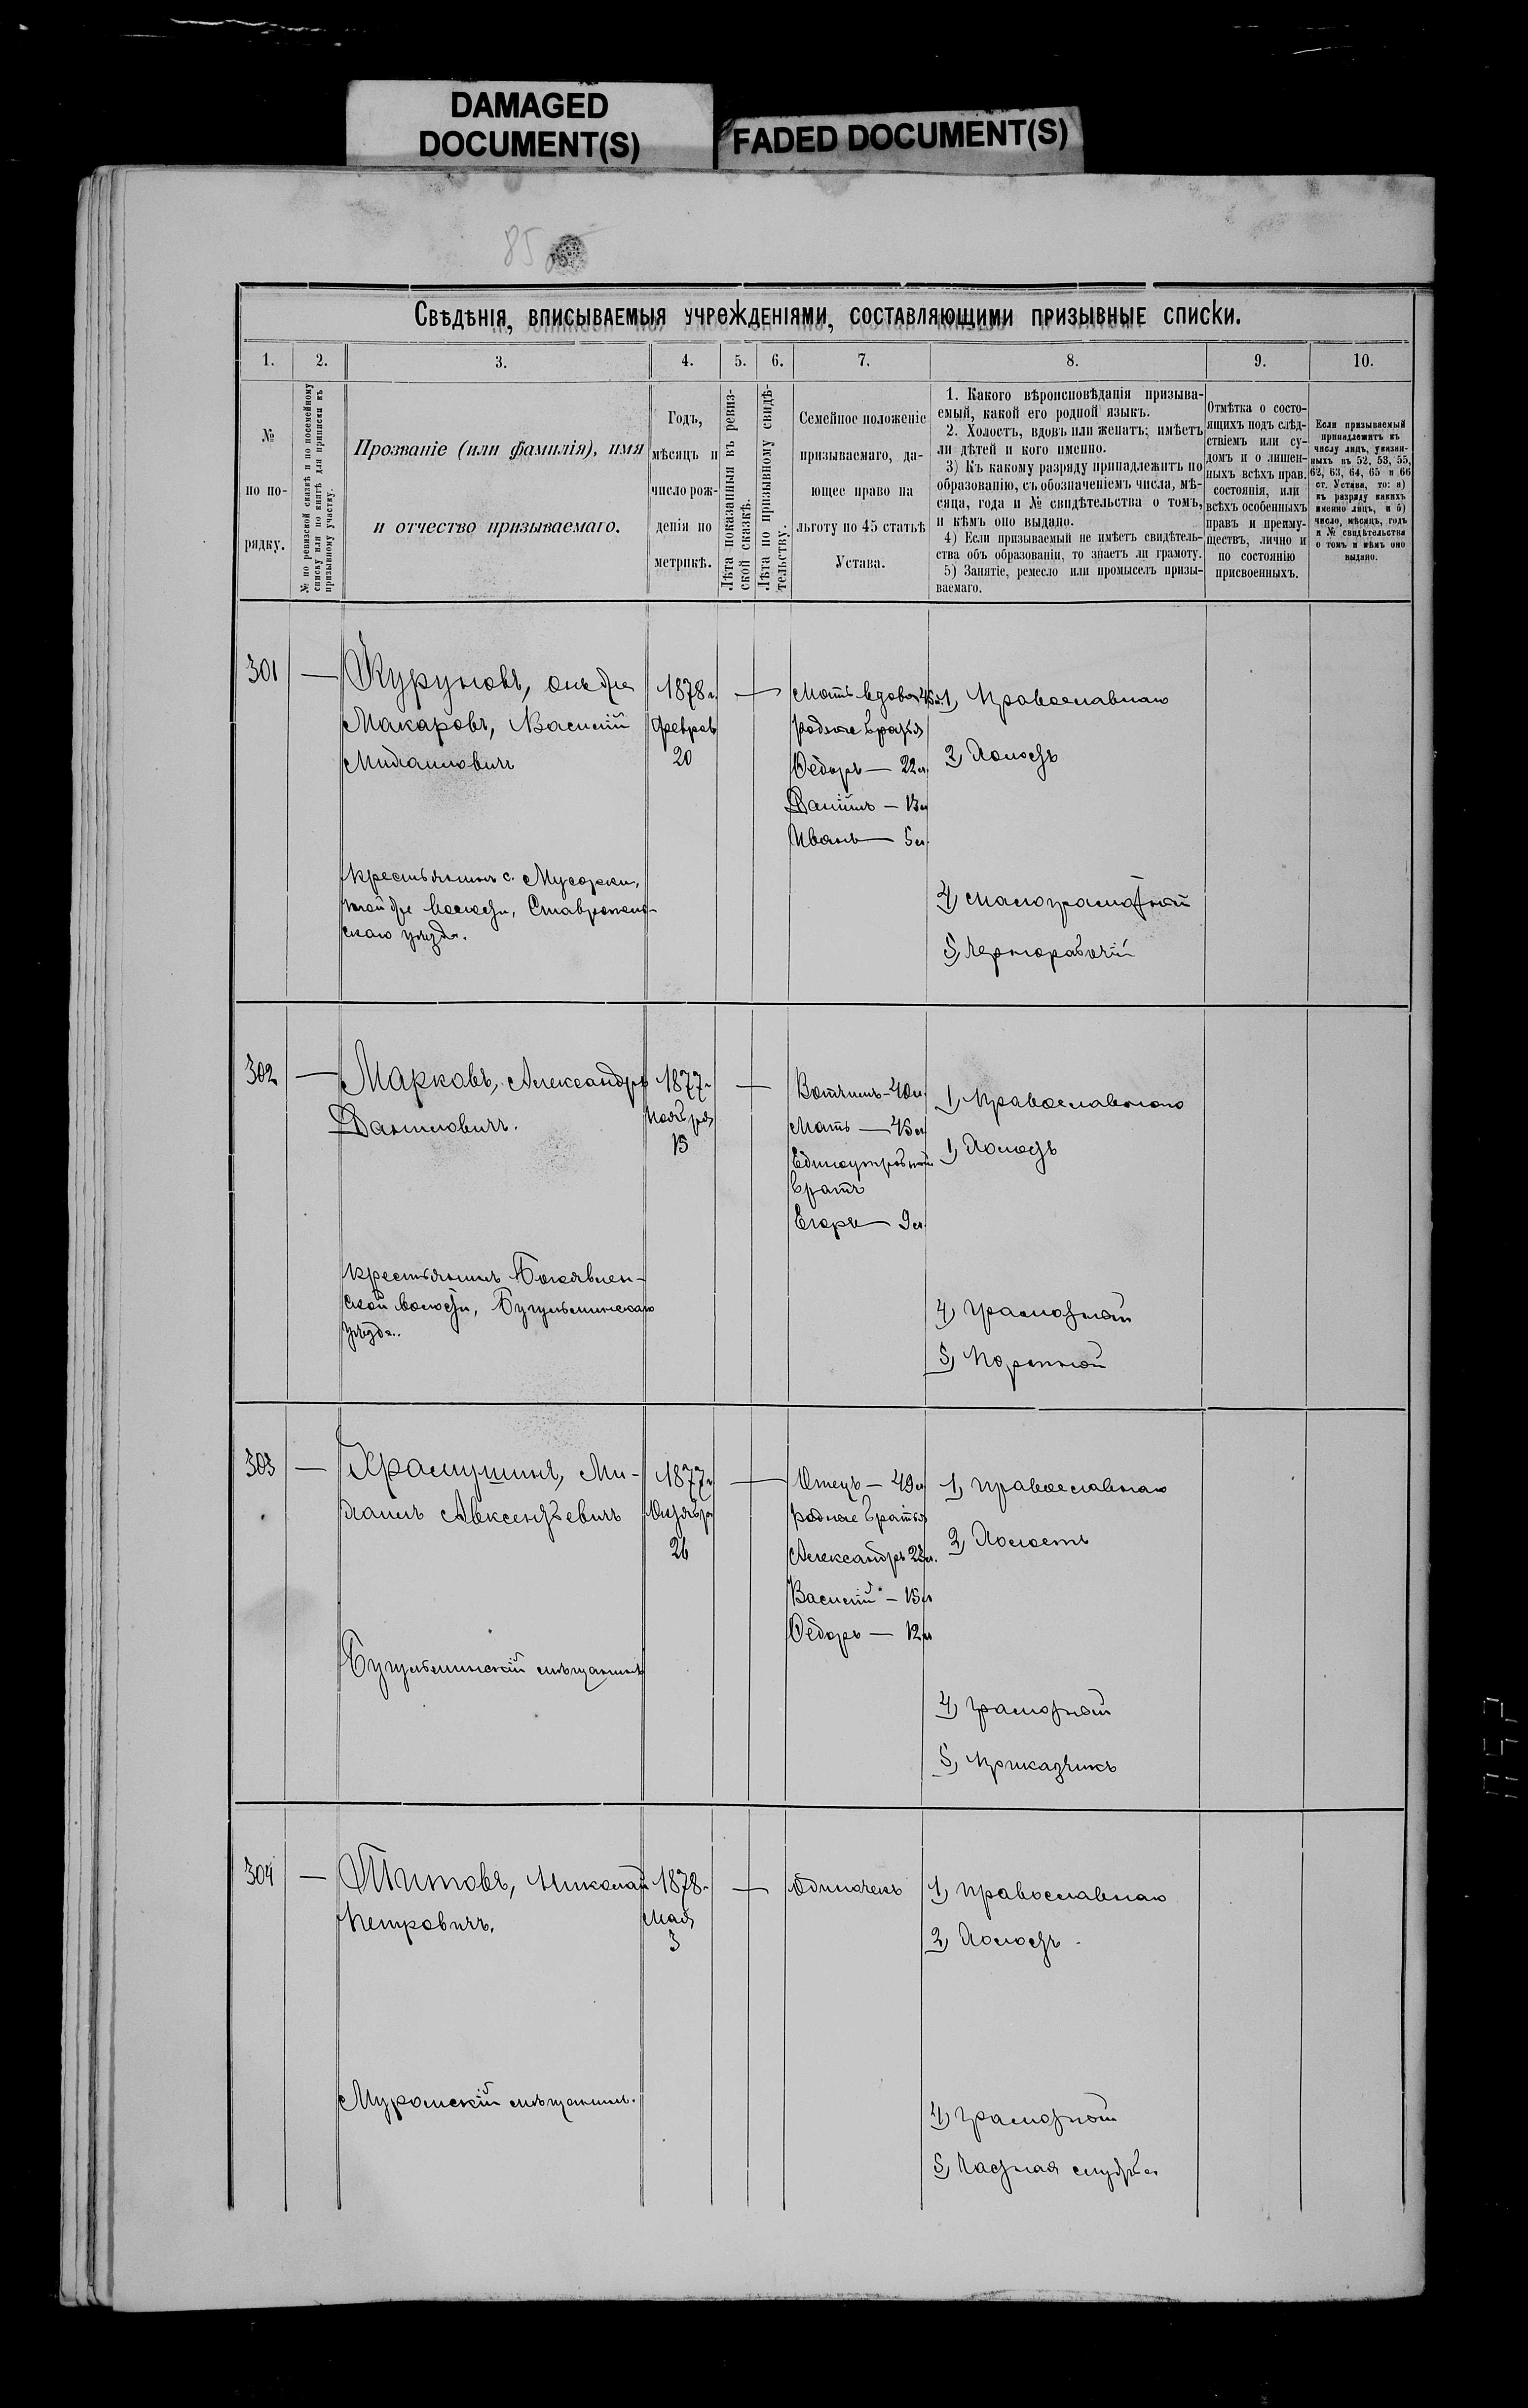 DAMAGED
DOCUMENT(S)
FADED DOCUMENT(S)
85
Свѣдѣнія, вписываемыя учрежденіями, составляющими призывные списки.
1. 2. 3. 4. 5. 6. 7. 8. 9. 10.
№
по по-
рядку.
№ по ревизской сказкѣ и по посемейному
списку или по книгѣ для приписки къ
призывному участку.
Прозваніе (или фамилія), имя
и отчество призываемаго.
Годъ,
мѣсяцъ и
число рож-
денія по
метрикѣ.
Лѣта показанныя въ ревиз-
ской сказкѣ.
Лѣта по призывному свидѣ-
тельству.
Семейное положеніе
призываемаго, да-
ющее право на
льготу по 45 статьѣ
Устава.
1. Какого вѣроисповѣданія призыва-
емый, какой его родной языкъ.
2. Холостъ, вдовъ или женатъ; имѣетъ
ли дѣтей и кого именно.
3) Къ какому разряду принадлежитъ по
образованію, съ обозначеніемъ числа, мѣ-
сяца, года и № свидѣтельства о томъ,
и кѣмъ оно выдано.
4) Если призываемый не имѣетъ свидѣтель-
ства объ образованіи, то знаетъ ли грамоту.
5) Занятіе, ремесло или промыселъ призы-
ваемаго.
Отмѣтка о состо-
ящихъ подъ слѣд-
ствіемъ или су-
домъ и о лишен-
ныхъ всѣхъ прав.
состоянія, или
всѣхъ особенныхъ
правъ и преиму-
ществъ, лично и
по состоянію
присвоенныхъ.
Если призываемый
принадлежитъ къ
числу лицъ, указан-
ныхъ въ 52, 53, 55,
62, 63, 64, 65 и 66
ст. Устава, то: а)
къ разряду какихъ
именно лицъ, и б)
число, мѣсяцъ, годъ
и № свидѣтельства
о томъ и кѣмъ оно
выдано.
301 — Журуновъ, онъ же
Макаровъ, Василій
Михаиловичъ
крестьянинъ с. Мусорки,
той же волости, Ставрополь-
скаго уѣзда.
1878 г.
Февраль
20
—
Мать вдова 45 л.
родные братья
Ѳедоръ — 22 л.
Даніилъ — 13 л.
Иванъ — 5 л.
1) Православнаго
2) Холостъ
4) Малограмотный
5) Чернорабочій
302 — Марковъ, Александръ
Даниловичъ.
крестьянинъ Богоявлен-
ской волости, Бугульминскаго
уѣзда.
1877 г.
Ноября
13
—
Вотчимъ — 40 л.
Мать — 45 л.
Единоутробный
братъ
Егоръ — 9 л.
1) Православнаго
1) Холостъ
4) Грамотный
5) Портной
303 — Храмушинъ, Ми-
хаилъ Авксентьевичъ
Бугульминскій мѣщанинъ
1877 г.
Октября
26
—
Отецъ — 49 л.
родные братья
Александръ 22 л.
Василій — 15 л.
Ѳедоръ — 12 л.
1) Православнаго
2) Холостъ
4) Грамотный
5) Приказчикъ
304 — Титовъ, Николай
Петровичъ.
Муромскій мѣщанинъ.
1878 г.
Мая
3
—
Одиночекъ
1) Православнаго
2) Холостъ
4) Грамотный
5) Частная служба